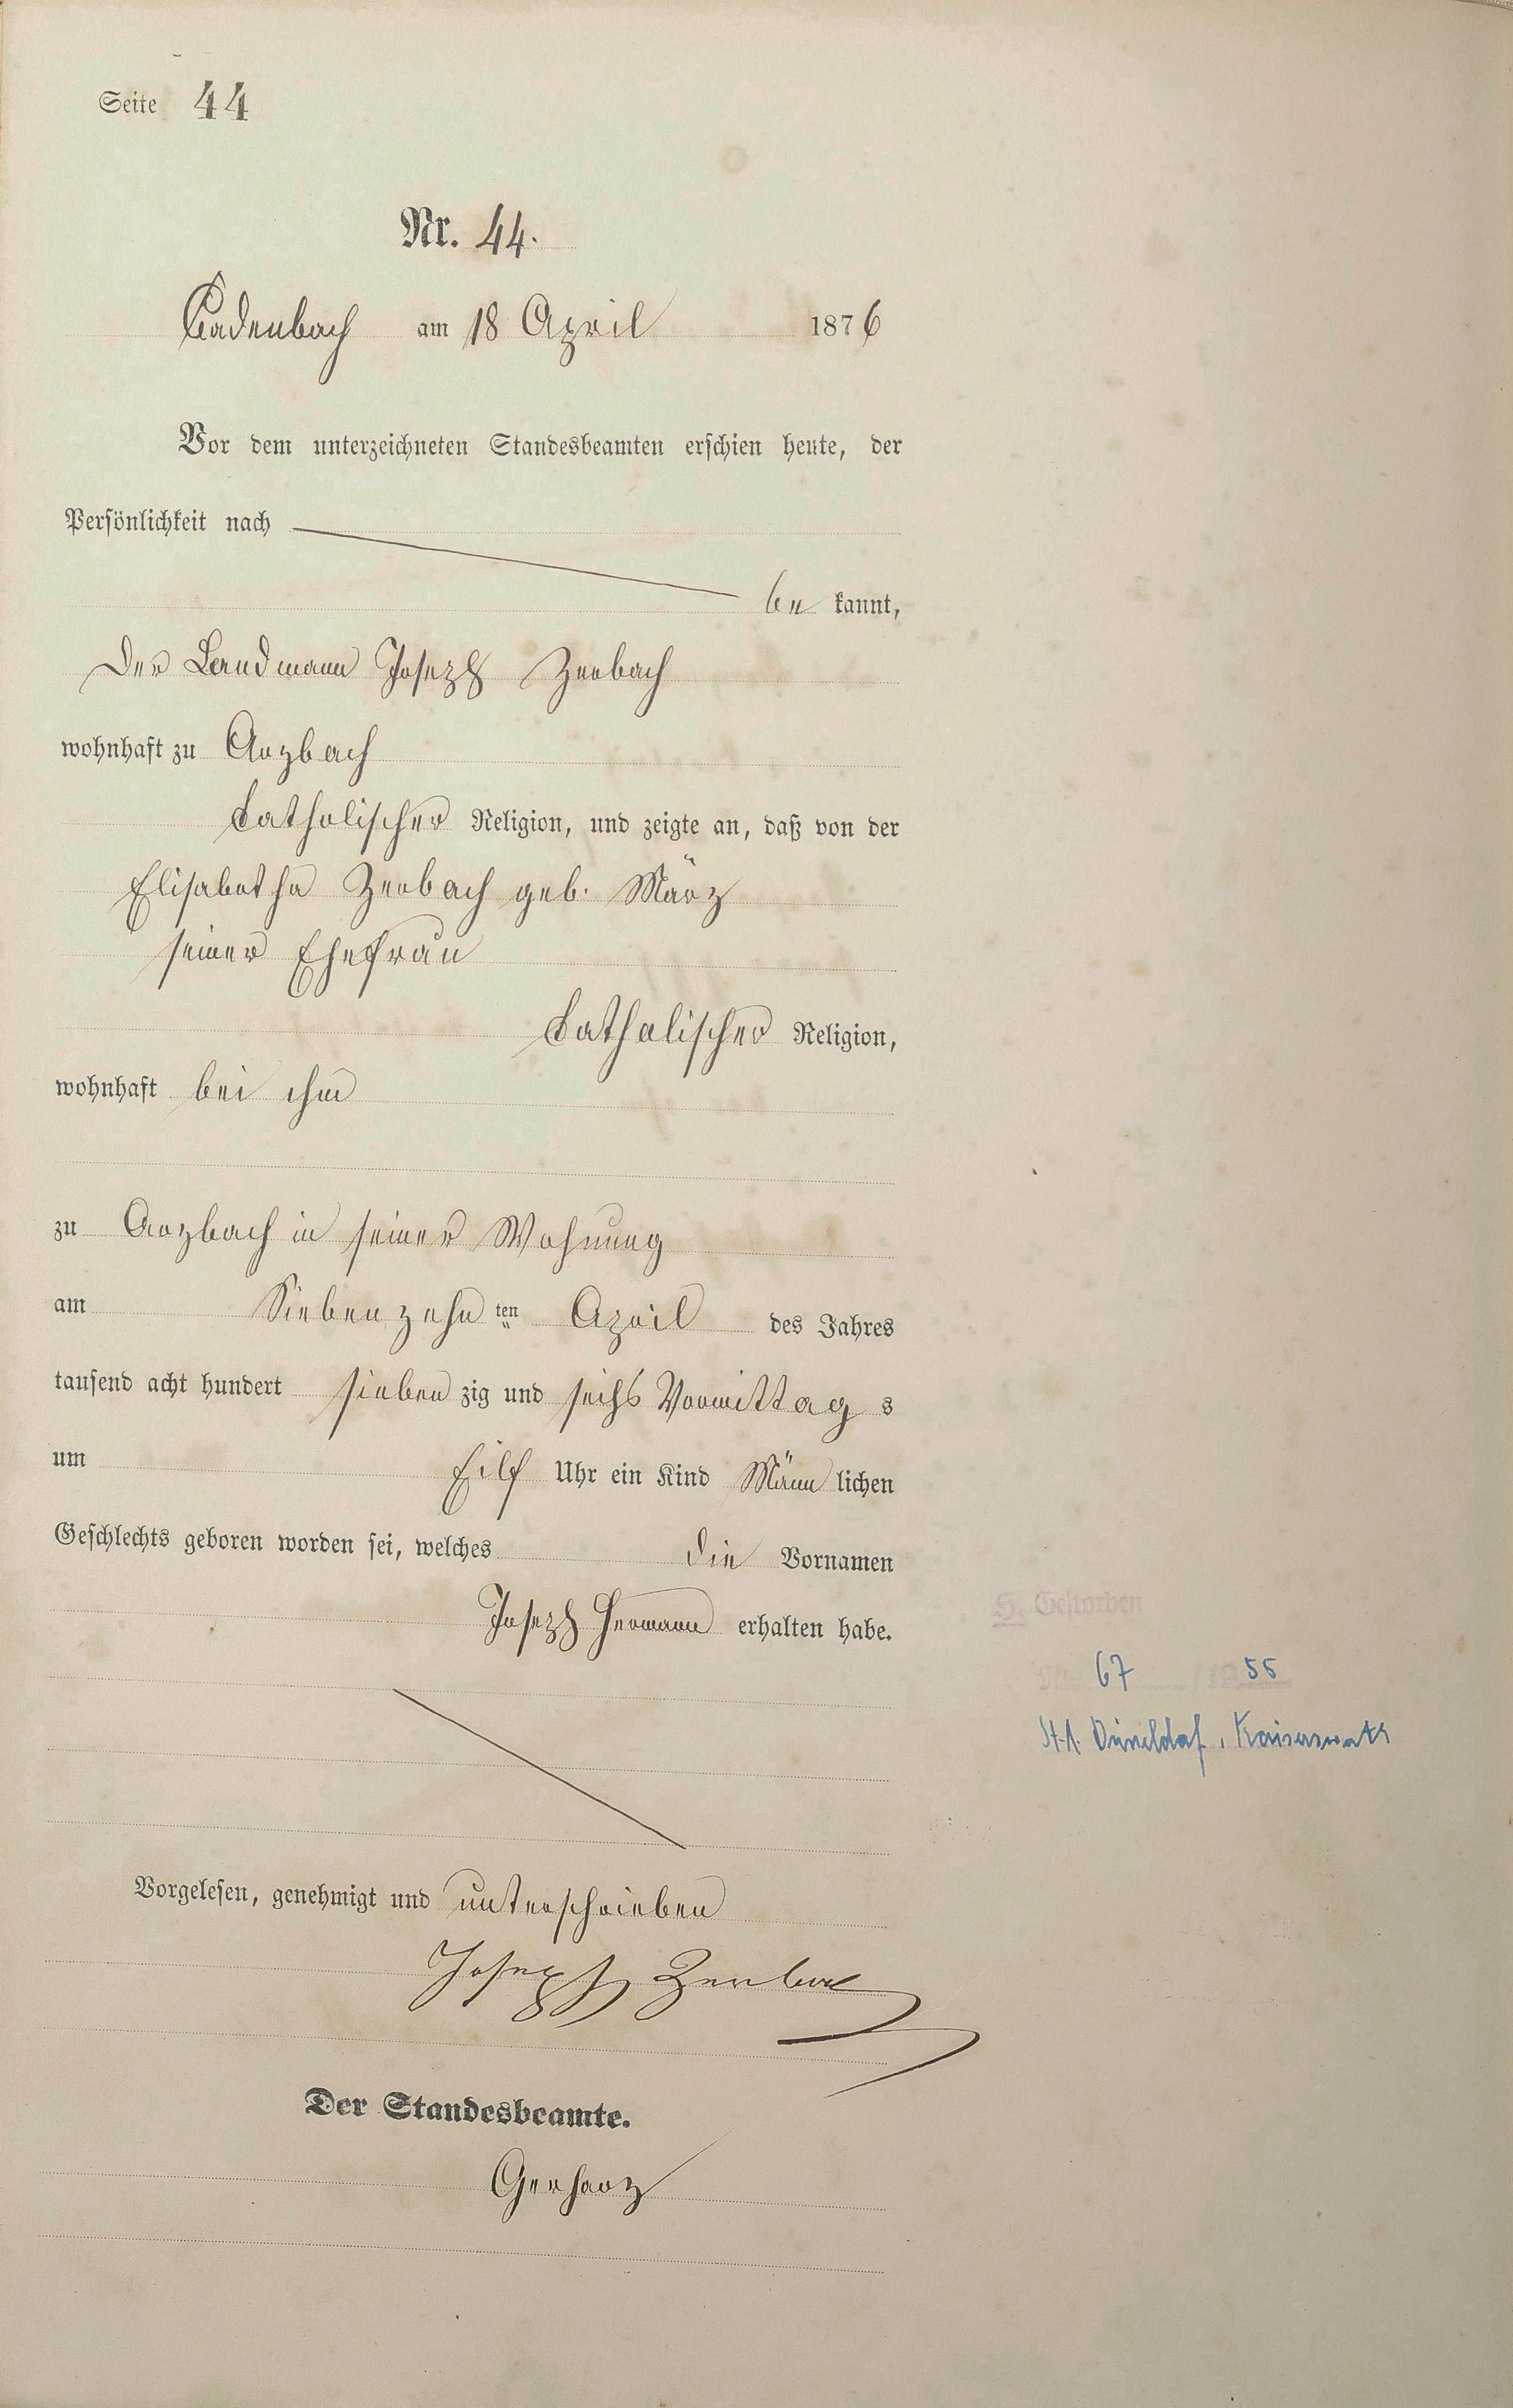 Seite 44
Nr. 44.
Cadenbach am 18 April 1876
Vor dem unterzeichneten Standesbeamten erschien heute, der
Persönlichkeit nach
be kannt,
Der Landmann Joseph Zerbach
wohnhaft zu Arzbach
Catholischer Religion, und zeigte an, daß von der
Elisabetha Zerbach geb. März
seiner Ehefrau
Catholischer Religion,
wohnhaft bei ihm
zu Arzbach in seiner Wohnung
am Siebenzehn ten April des Jahres
tausend acht hundert sieben zig und sechs Vormittag s
um Eilf Uhr ein Kind Männ lichen
Geschlechts geboren worden sei, welches die Vornamen
Joseph Hermann erhalten habe.
H. Gestorben
Nr. 67 /1955
St.A. Düsseldorf, Kaiserswerth
Vorgelesen, genehmigt und unterschrieben
Joseph Zerbach
Der Standesbeamte.
Gerharz